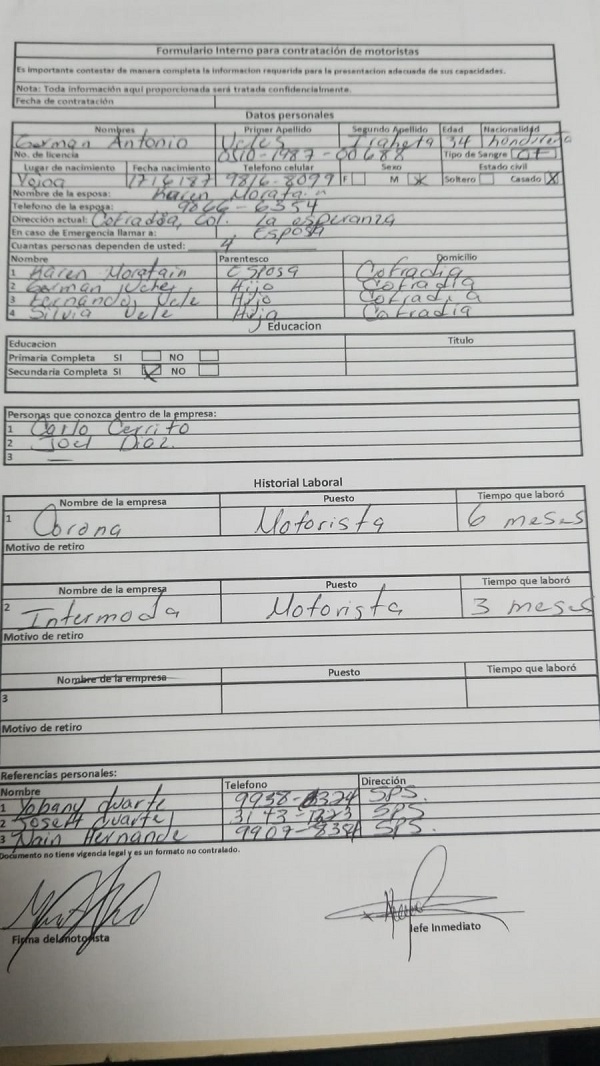 Formulario Interno para contratación de motoristas
Es importante contestar de manera completa la informacion requerida para la presentacion adecuada de sus capacidades.
Nota: Toda información aqui proporcionada será tratada confidencialmente.
Fecha de contratación
Datos personales
Nombres Primer Apellido Segundo Apellido Edad Nacionalidad
German Antonio Veles Iraheta 34 hondureña
No. de licencia 0510-1987-00688 Tipo de Sangre O+
Lugar de nacimiento Fecha nacimiento Telefono celular Sexo Estado civil
17/6/87 9816-8099 F M X Soltero Casado X
Nombre de la esposa: Karen
Telefono de la esposa: 9866-6354
Dirección actual: Cofradia, Col. la esperanza
En caso de Emergencia llamar a: Esposa
Cuantas personas dependen de usted: 4
Nombre Parentesco Domicilio
1 Karen Esposa Cofradia
2 German Hijo Cofradia
3 Fernando Vele Hijo Cofradia
4 Silvia Vele Hija Cofradia
Educacion
Educacion Titulo
Primaria Completa SI NO
Secundaria Completa SI X NO
Personas que conozca dentro de la empresa:
1 Carlo Cerrito
2 Joel Diaz.
3 —
Historial Laboral
Nombre de la empresa Puesto Tiempo que laboró
1 Corona Motorista 6 meses
Motivo de retiro
Nombre de la empresa Puesto Tiempo que laboró
2 Intermoda Motorista 3 meses
Motivo de retiro
Nombre de la empresa Puesto Tiempo que laboró
3
Motivo de retiro
Referencias personales:
Nombre Telefono Dirección
1 Yobany duarte SPS.
2 duarte SPS
3 Nain Hernande SPS.
Documento no tiene vigencia legal y es un formato no contralado.
Firma del motorista
Jefe Inmediato